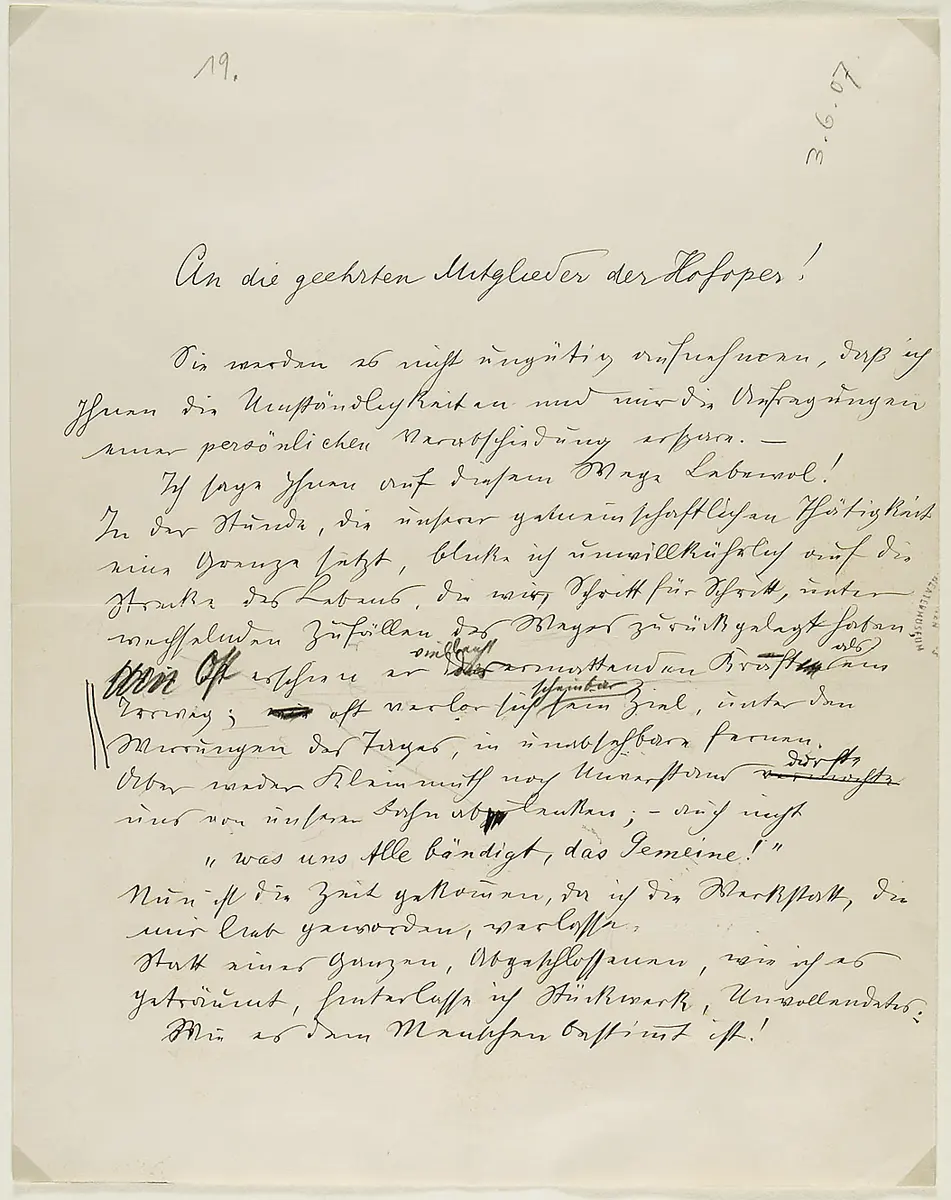 19.
3.6.07
An die geehrten Mitglieder der Hofoper!
Sie werden es nicht ungütig aufnehmen, daß ich
Ihnen die Umständlichkeiten und mir die Aufregungen
einer persönlichen Verabschiedung erspare. —
Ich sage Ihnen auf diesem Wege Lebewol!
In der Stunde, die unserer gemeinschaftlichen Thätigkeit
eine Grenze setzt, blicke ich unwillkührlich auf die
Strecke des Lebens, die wir, Schritt für Schritt, unter
wechselnden Zufällen des Weges zurückgelegt haben.
vielleicht als
Oft erschien er ermattenden Kräften ein
scheinbar
Irrweg; oft verlor sich sein Ziel, unter den
Wirrungen des Tages, in unabsehbare Fernen.
durfte
Aber weder Kleinmuth noch Unverstand vermochte
uns von unserer Bahn ab lenken; – auch nicht
„was uns Alle bändigt, das Gemeine!"
Nun ist die Zeit gekommen, da ich die Werkstatt, die
mir lieb geworden, verlasse.
Statt eines Ganzen, Abgeschlossenen, wie ich es
geträumt, hinterlasse ich Stückwerk, Unvollendetes:
Wie es dem Menschen bestimmt ist!